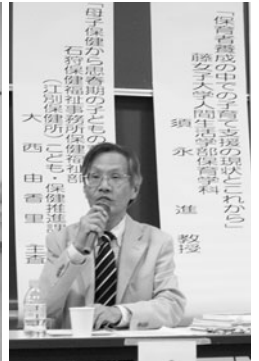 「保育者養成の中での子育て支援の現状とこれから」
藤女子大学人間生活学部保育学科
須永進教授
「母子保健から思春期の子どもの
石狩保健福祉事務所保健福祉部
（江別保健所）こども・保健推進課
大西由香里主査